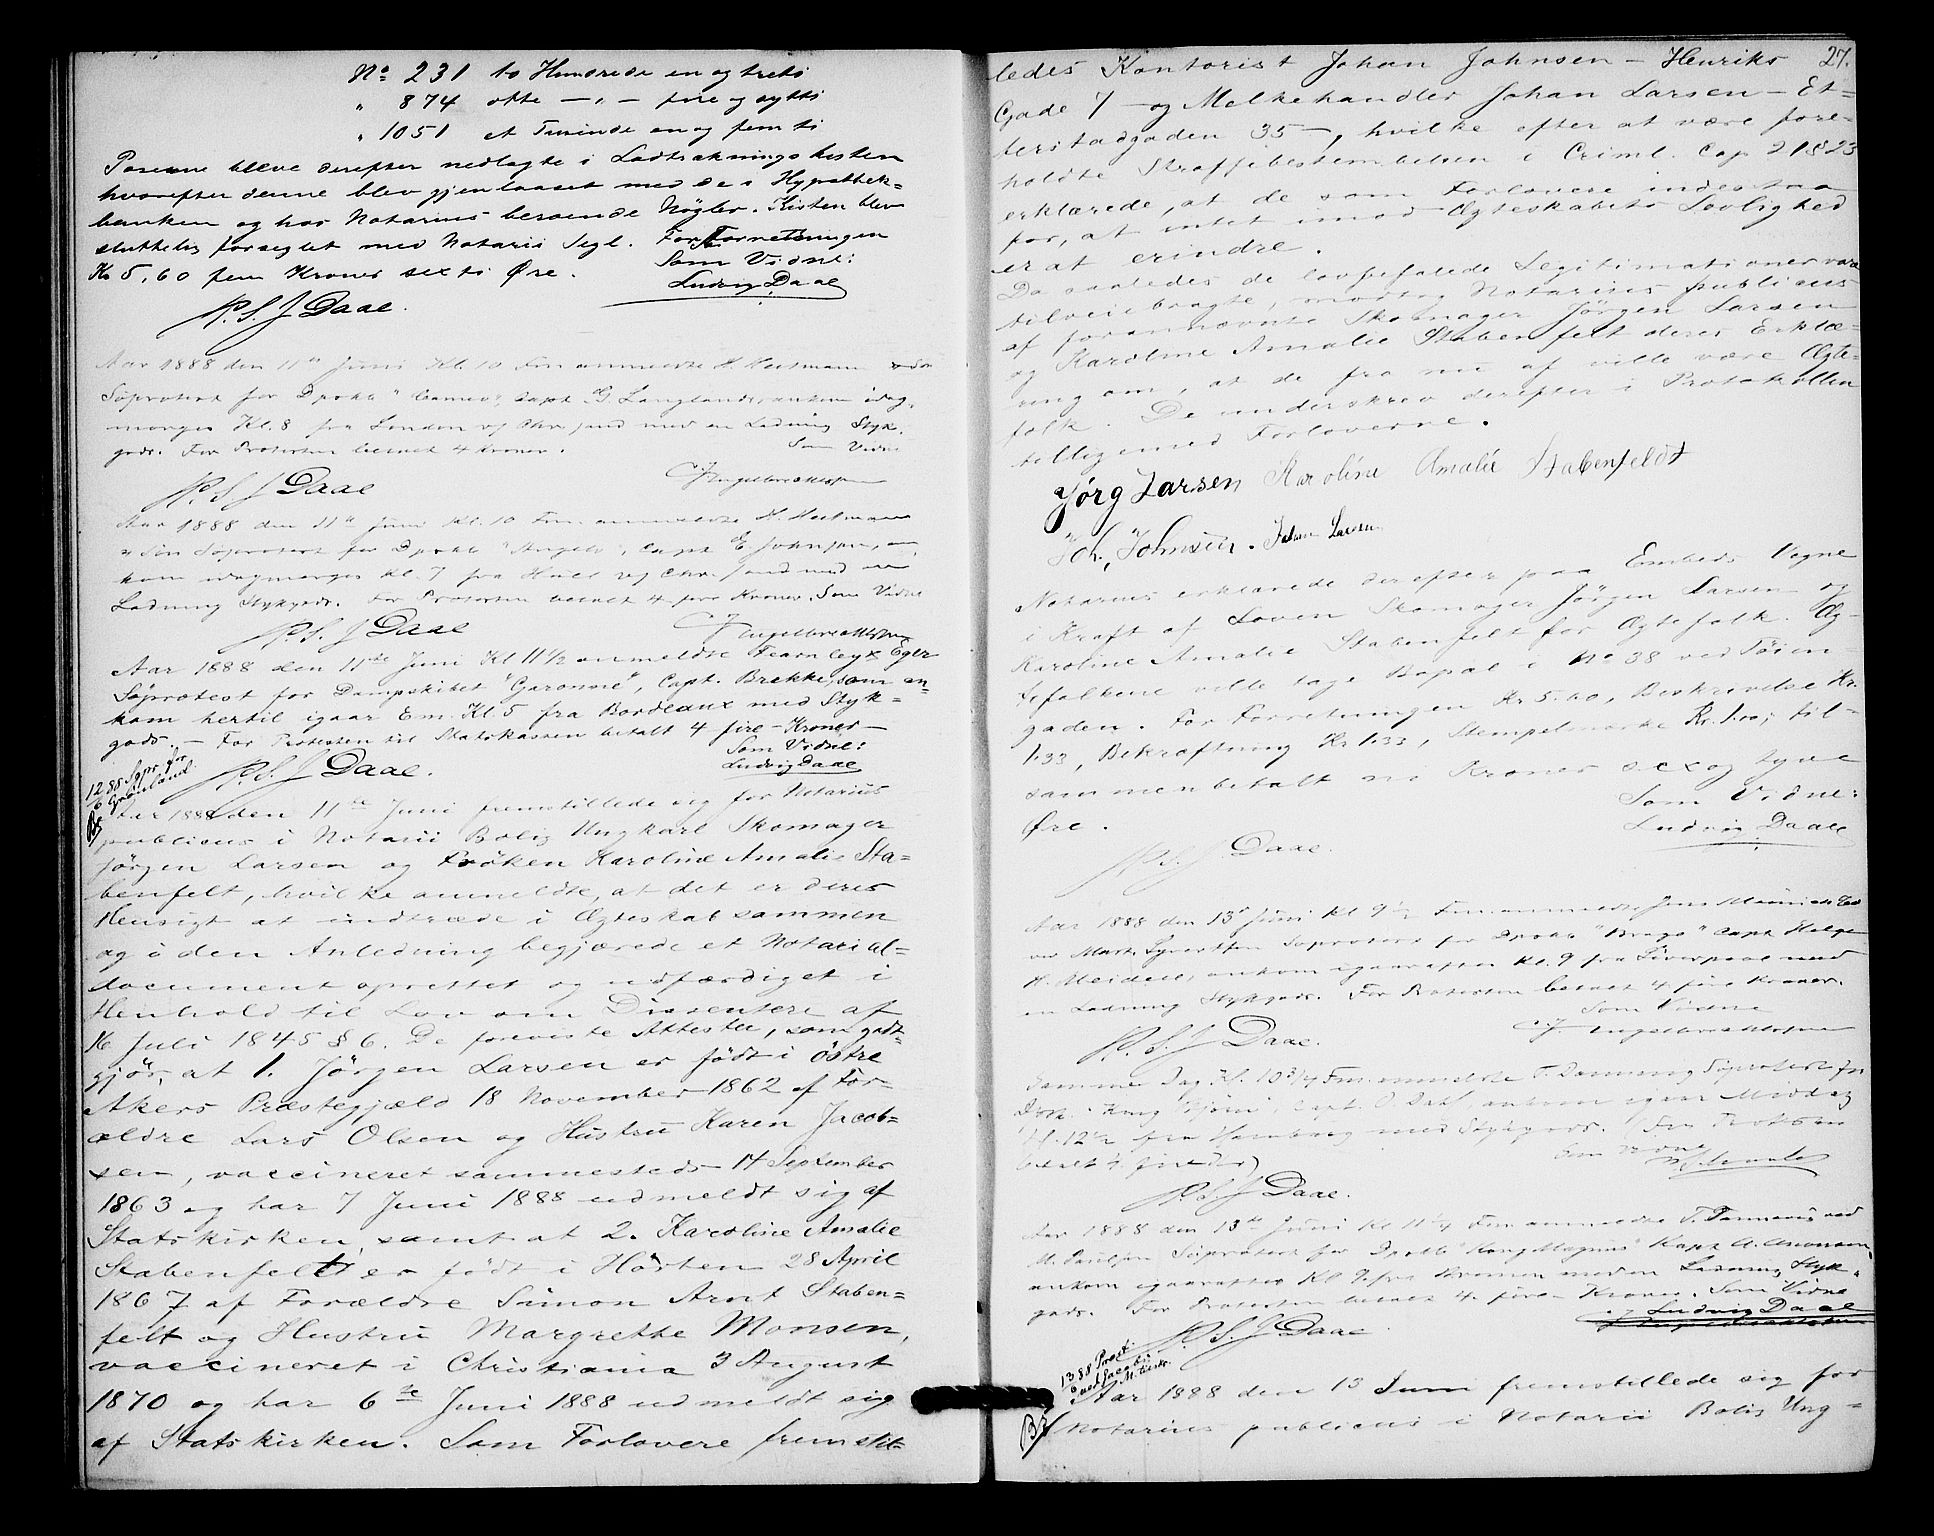 No 231 to Hundrede en og treti
" 874 otte — " — fire og sytti
" 1051 et Tusinde en og femti
Poserne bleve derefter nedlagte i Lodtrækningskisten
hvorefter denne blev gjenlaaset med de i Hypothek-
banken og hos Notarius beroende Nøgler. Kisten blev
sluttelig forseglet med Notarii Segl. For Forretningen
Kr 5,60 fem Kroner sexti Øre. Som Vidne:
Ludvig Daae
P. S. J Daae.
Aar 1888 den 11te Juni Kl. 10 Fm anmeldte H. Heitmann
Søprotest for Dpskb "Cameo", Capt G. Langlands, ankom idag
morges Kl. 8 fra London og Chr.sand med en Ladning Styk-
gods. For Protesten betalt 4 Kroner. Som Vidne
P. S. J Daae C. J. Engelbrethsen
Aar 1888 den 11te Juni Kl. 10 Fm. anmeldte H. Heitmann
Søprotest for Dpskb "Angelo", Capt E. Johnson, an-
kom idagmorges Kl. 7 fra Hull og Chr.sand med en
Ladning Stykgods. For Protesten betalt 4 fire Kroner. Som Vidne
P. S. J Daae C. J. Engelbrethsen
Aar 1888 den 11te Juni Kl 11 1/2 anmeldte Fearnley & Eger
Søprotest for Dampskibet "Garonne", Capt. Brekke, som an-
kom hertil igaar Em. Kl. 5 fra Bordeaux med Styk-
gods. — For Protesten til Statskassen betalt 4 fire — Kroner —
Som Vidne:
P. S. J Daae. Ludvig Daae
12/6 88 Søpr. for Grønland
Aar 1888 den 11te Juni fremstillede sig for Notarius
publicus i Notarii Bolig Ungkarl Skomager
Jörgen Larsen og Frøken Karoline Amalie Sta-
benfelt, hvilke anmeldte, at det er deres
Hensigt at indtræde i Ægteskab sammen
og i den Anledning begjærede et Notarial-
document oprettet og udfærdiget i
Henhold til Lov om Dissentere af
16 Juli 1845 § 6. De foreviste Attester, som godt-
gjør, at 1. Jörgen Larsen er født i Østre
Akers Præstegjæld 18 November 1862 af For-
ældre Lars Olsen og Hustru Karen Jacob-
sen, vaccineret sammesteds 14 September
1863 og har 7 Juni 1888 udmeldt sig af
Statskirken, samt at 2. Karoline Amalie
Stabenfelt er født i Horten 28 April
1867 af Forældre Simon Arnt Staben-
felt og Hustru Margrethe Monsen,
vaccineret i Christiania 3 August
1870 og har 6te Juni 1888 udmeldt sig
af Statskirken. Som Forlovere fremstil-
27.
ledes Kontorist Johan Johnsen — Henriks
Gade 7 — og Melkehandler Johan Larsen — Et-
terstadgaden 35 —, hvilke efter at være fore-
holdte Straffebestemmelsen i Criml. Cap 21 § 23
erklærede, at de som Forlovere indestaa
for, at intet imod Ægteskabets Lovlighed
er at erindre.
Da saaledes de lovbefalede Legitimationer vare
tilveiebragte, modtog Notarius publicus
af forannævnte Skomager Jörgen Larsen
og Karoline Amalie Stabenfelt deres Erklæ-
ring om, at de fra nu af ville være Ægte-
folk. De underskrev derefter i Protokollen
tilligemed Forloverne.
Jörg Larsen Karoline Amalie Stabenfeldt
Joh. Johnsen. Johan Larsen
Notarius erklærede derefter paa Embeds Vegne
i Kraft af Loven Skomager Jörgen Larsen og
Karoline Amalie Stabenfelt for Ægtefolk. Æg-
tefolkene ville tage Bopæl i No 38 ved Tøien-
gaden. For Forretningen Kr 5.60, Beskrivelse Kr.
1.33, Bekræftning Kr 1.33, Stempelmærke Kr. 1.00, til-
sammen betalt ni Kroner sex og tyve
Øre. Som Vidne:
P. S. J. Daae. Ludvig Daae
Aar 1888 den 13de Juni Kl 9 1/2 Fm. anmeldte Jens Meinich & Co
ved Mark. Syvertsen Søprotest for Dpskb "Brage" Capt Helge
H. Meidell, ankom igaaraftes Kl. 9 fra Liverpool med
en Ladning Stykgods. For Protesten betalt 4 fire Kroner.
Som Vidne
P. S. J Daae. C. J. Engelbrethsen
Samme Dag Kl. 10 3/4 Fm. anmeldte T. Dannevig Søprotest for
Dpsk. "Kong Bjørn", Capt. O Dahl, ankom igaar Middag
Kl. 12 1/2 fra Hamborg med Stykgods. For Protesten
betalt 4. fire Kr) Som Vidne
P. S. J Daae.
Aar 1888 den 13de Juni Kl 11 1/4 Fm anmeldte T. Dannevig ved
M. Paulsen Søprotest for Dpskb "Kong Magnus" Kapt A. Aronsen,
ankom igaaraftes Kl 9 fra Bremen med en Ladning Styk-
gods. For Protesten betalt 4. fire — Kroner. Som Vidne
Ludvig Daae
P. S. J Daae C. J. Engelbrethsen
13/6 88 Prot. ved Jacob
Aar 1888 den 13 Juni fremstillede sig for
Notarius publicus i Notarii Bolig Ung-